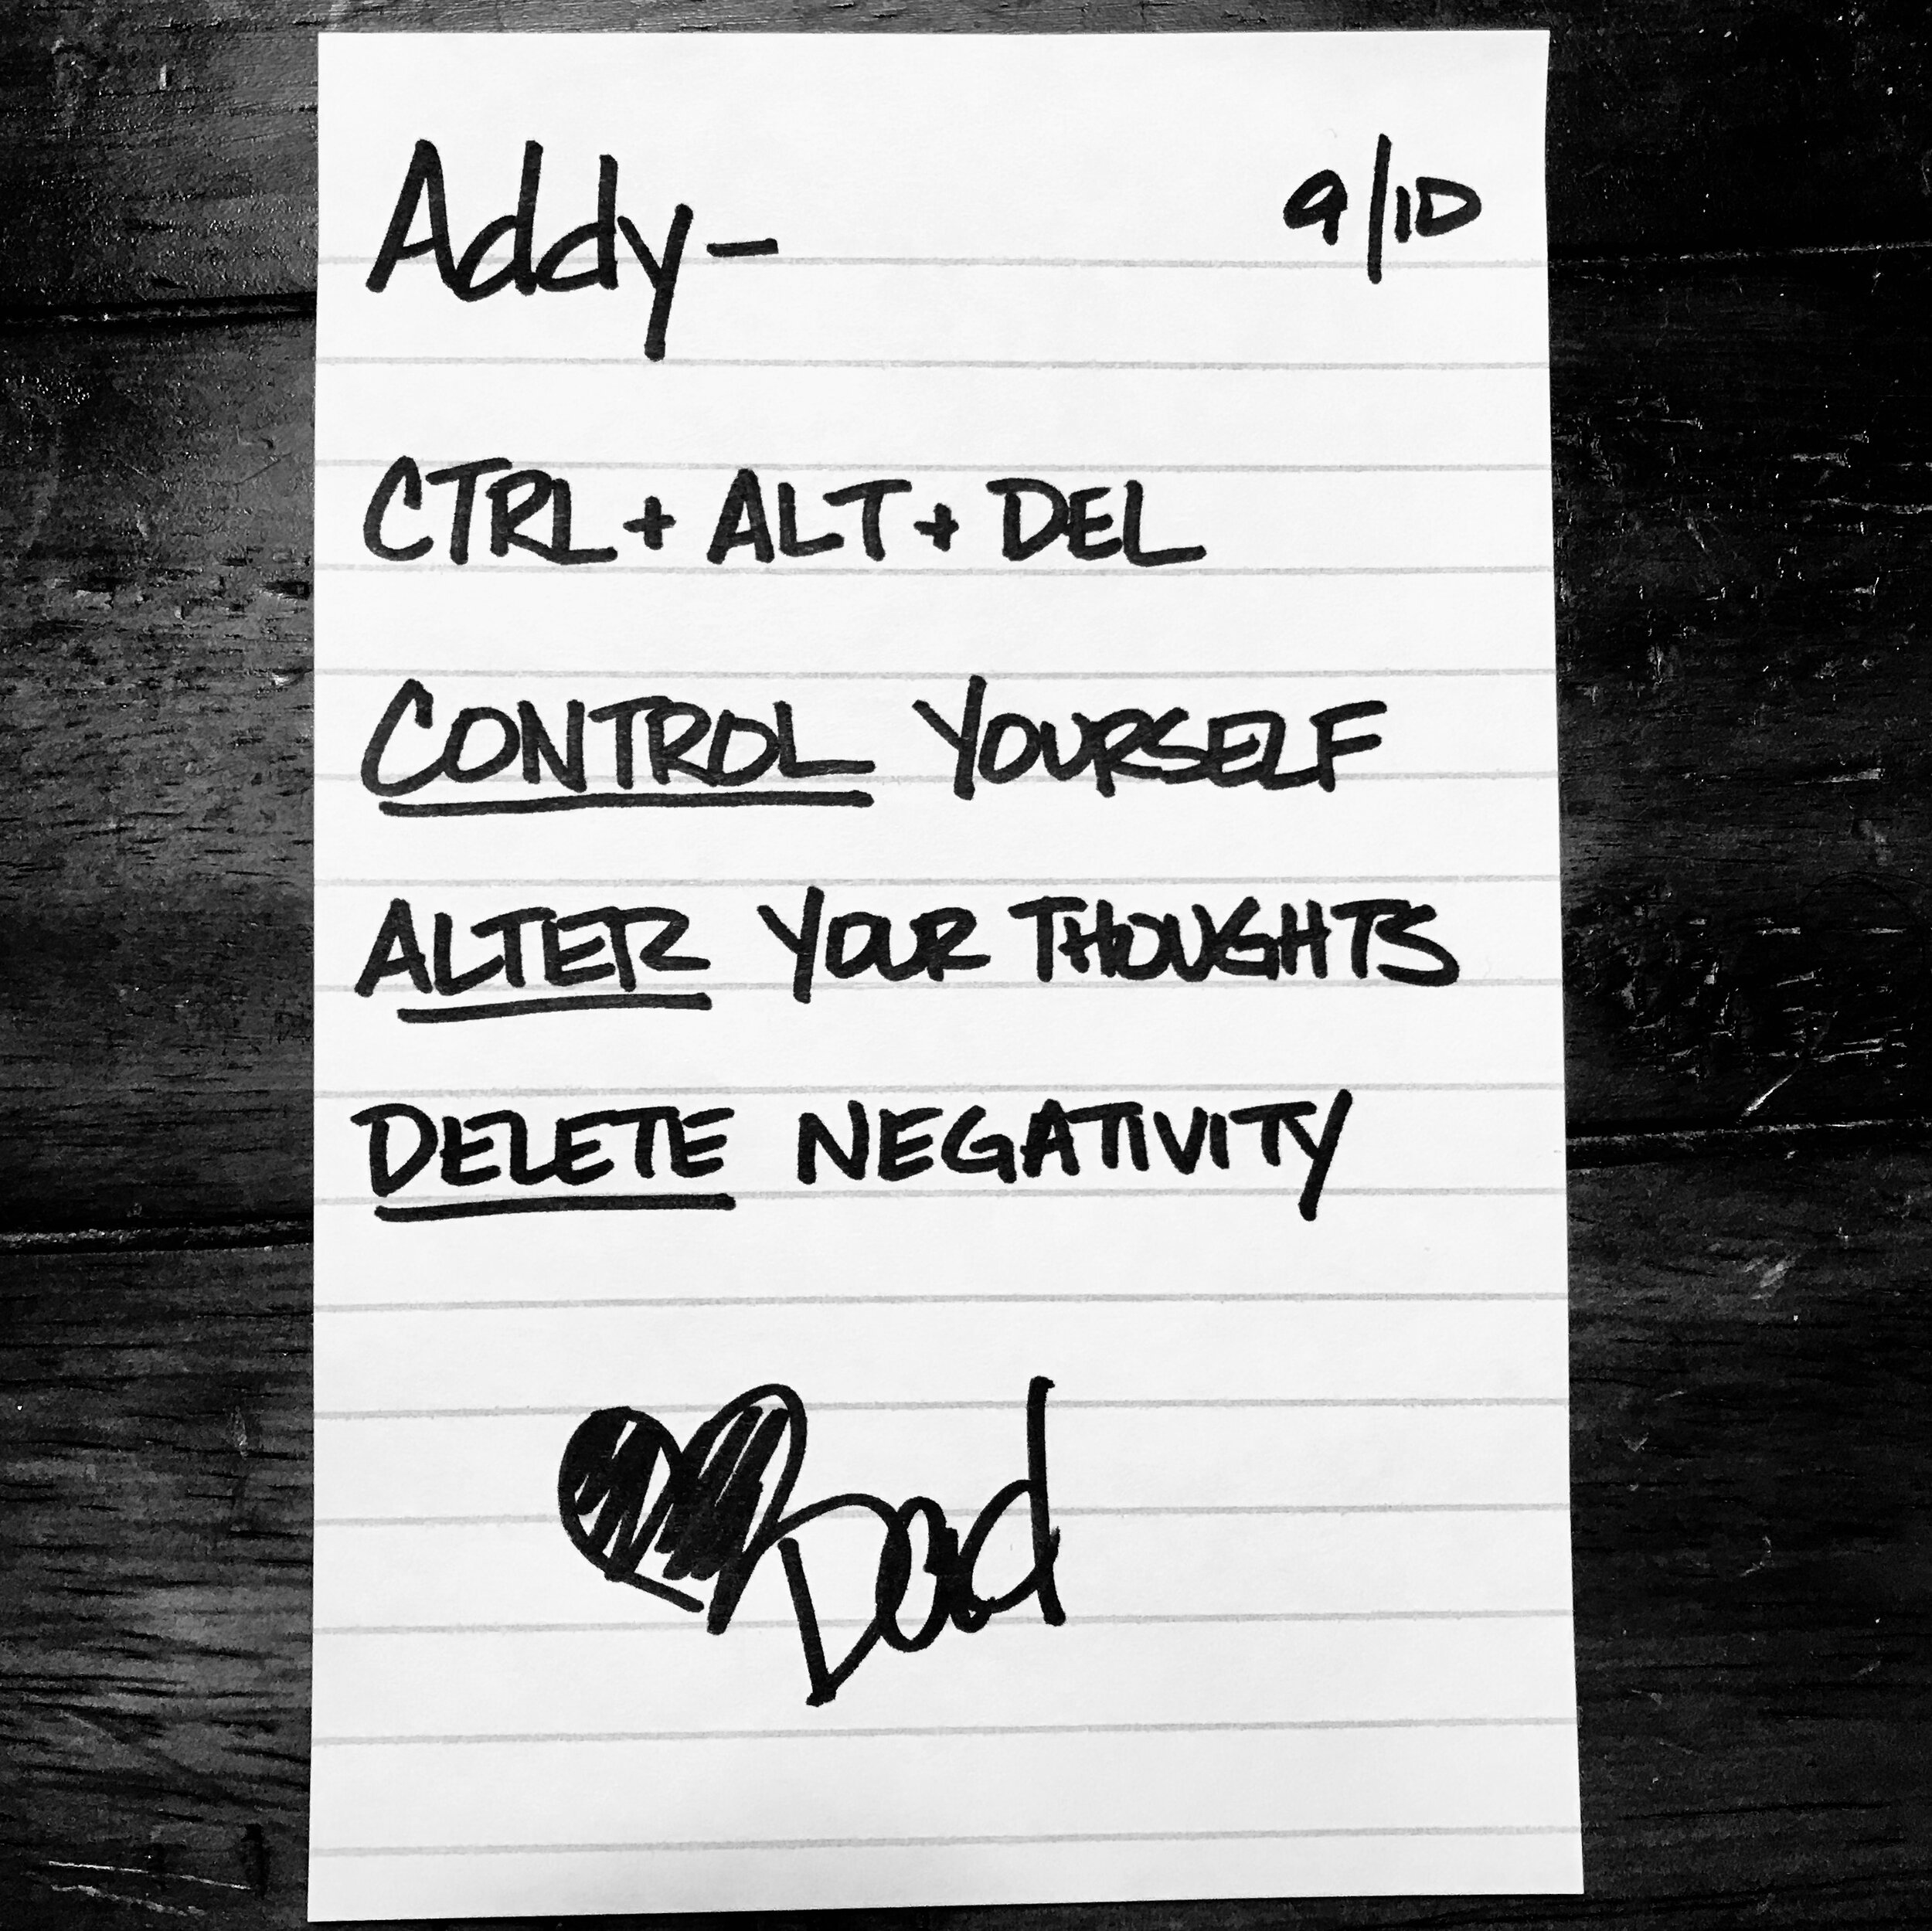 Addy- 9/10
CTRL + ALT + DEL
CONTROL YOURSELF
ALTER YOUR THOUGHTS
DELETE NEGATIVITY
Dad